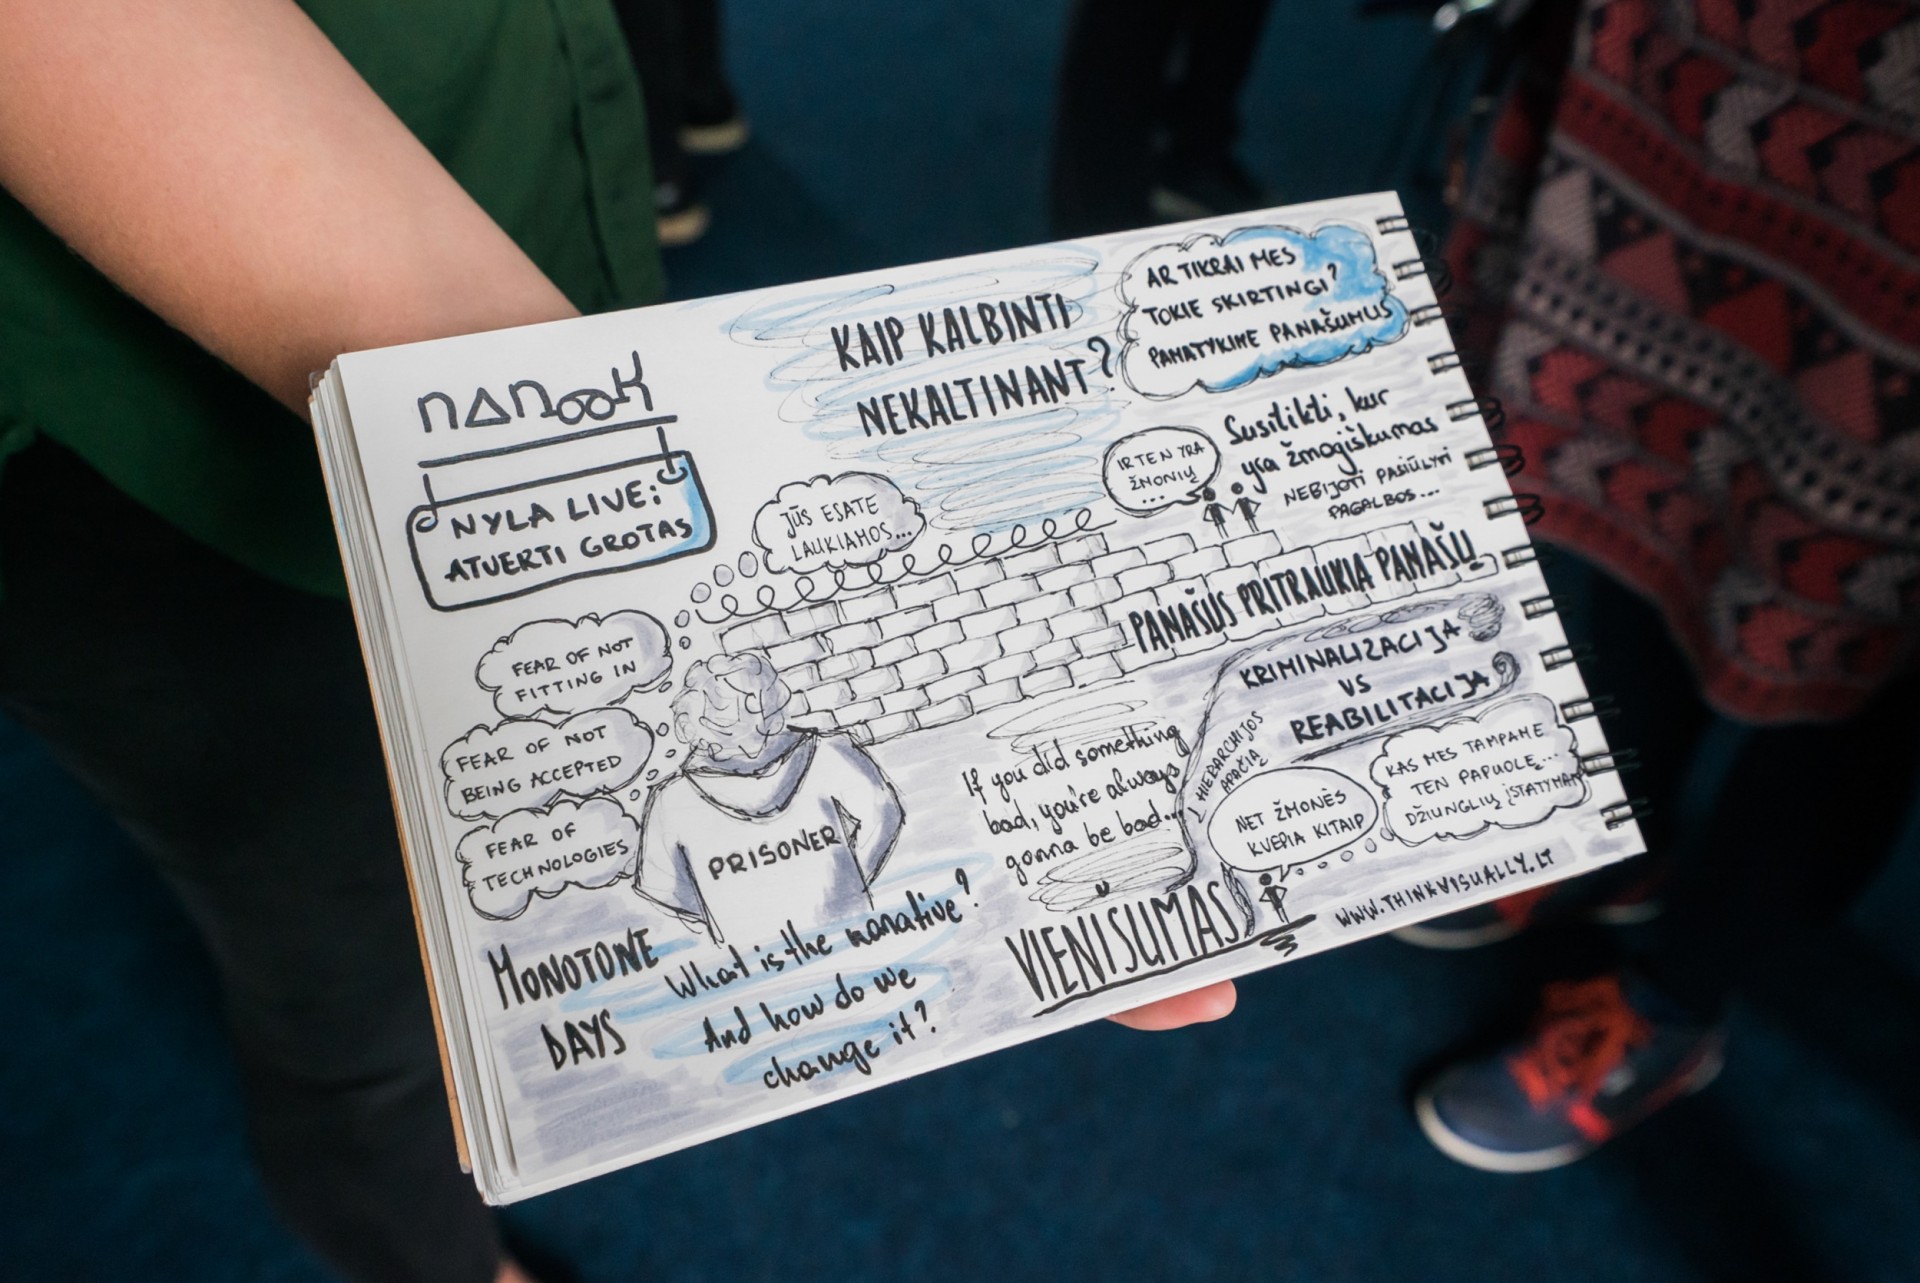 NANOOK
NYLA LIVE:
ATVERTI GROTAS
KAIP KALBINTI
NEKALTINANT?
AR TIKRAI MES
TOKIE SKIRTINGI?
PAMATYKIME PANAŠUMUS
JŪS ESATE
LAUKIAMOS...
IR TEN YRA
ŽMONIŲ
...
Susitikti, kur
yra žmogiškumas
NEBIJOTI PASIŪLYTI
PAGALBOS...
PANAŠUS PRITRAUKIA PANAŠŲ
FEAR OF NOT
FITTING IN
FEAR OF NOT
BEING ACCEPTED
FEAR OF
TECHNOLOGIES
PRISONER
MONOTONE
DAYS
What is the narative?
And how do we
change it?
If you did something
bad, you're always
gonna be bad...
VIENIŠUMAS
KRIMINALIZACIJA
VS
REABILITACIJA
Į HIERARCHIJOS
APAČIĄ
NET ŽMONĖS
KVEPIA KITAIP
KAS MES TAMPAME
TEN PAPUOLĘ...
DŽIUNGLIŲ ĮSTATYMAI
WWW.THINKVISUALLY.LT